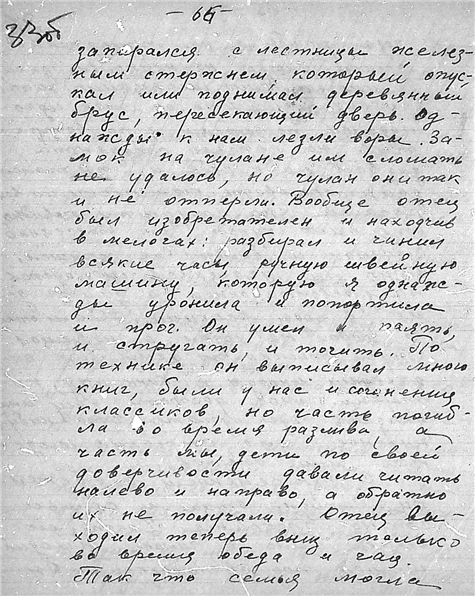 - 66 -
33об
запирался с лестницы желез-
ным стержнем, который опус-
кал или поднимал деревянный
брус, пересекающий дверь. Од-
нажды к нам лезли воры. За-
мок на чулане им сломать
не удалось, но чулан они так
и не отперли. Вообще отец
был изобретателен и находчив
в мелочах: разбирал и чинил
всякие часы, ручную швейную
машину, которую я однаж-
ды уронила и попортила
и проч. Он умел и паять,
и стругать, и точить. По
технике он выписывал много
книг, были у нас и сочинения
классиков, но часть погиб-
ла во время разлива, а
часть мы, дети по своей
доверчивости давали читать
налево и направо, а обратно
их не получали. Отец вы-
ходил теперь вниз только
во время обеда и чая.
Так что семья могла